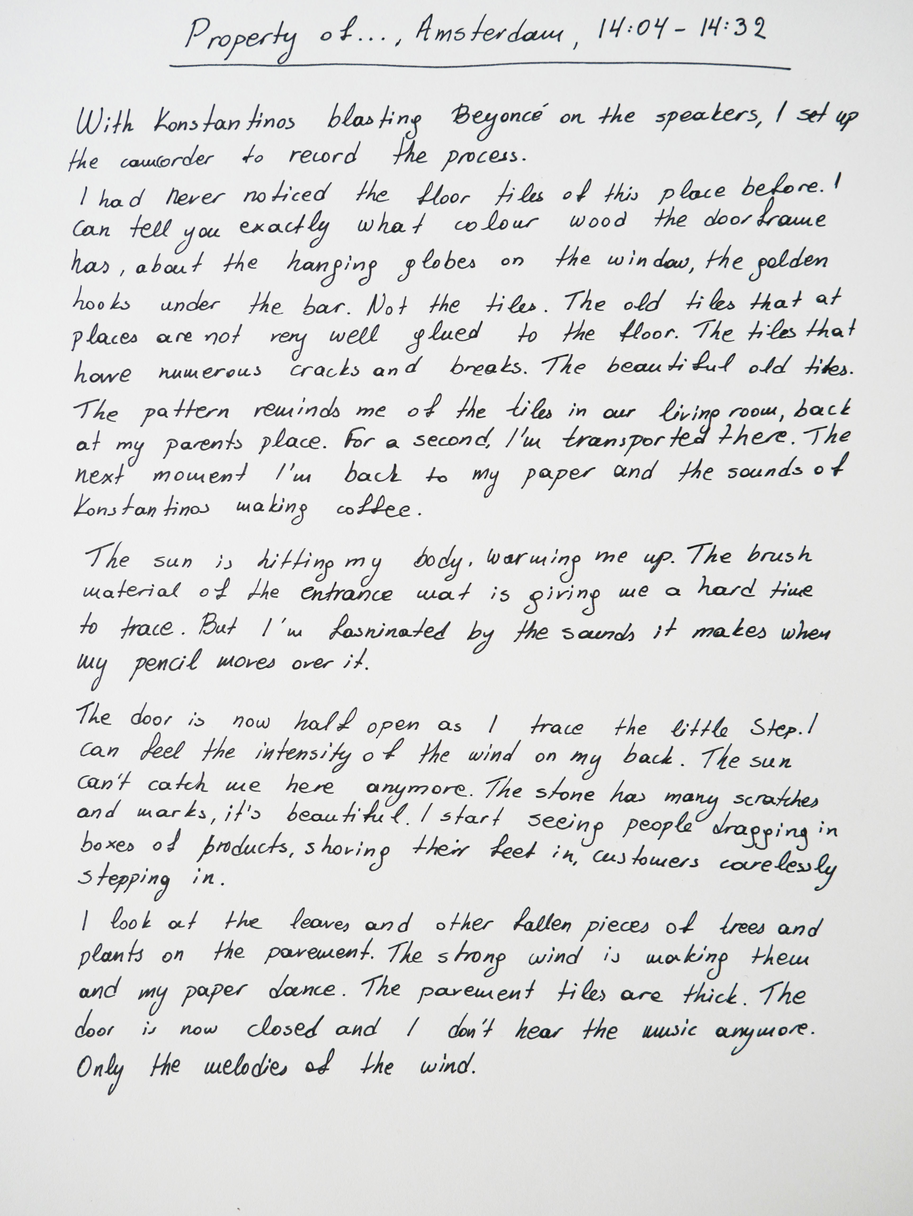 Property of..., Amsterdam, 14:04 - 14:32
With Konstantinos blasting Beyoncé on the speakers, I set up
the camcorder to record the process.
I had never noticed the floor tiles of this place before. I
can tell you exactly what colour wood the doorframe
has, about the hanging globes on the window, the golden
hooks under the bar. Not the tiles. The old tiles that at
places are not very well glued to the floor. The tiles that
have numerous cracks and breaks. The beautiful old tiles.
The pattern reminds me of the tiles in our living room, back
at my parents place. For a second, I'm transported there. The
next moment I'm back to my paper and the sounds of
Konstantinos making coffee.
The sun is hitting my body, warming me up. The brush
material of the entrance mat is giving me a hard time
to trace. But I'm fasninated by the sounds it makes when
my pencil moves over it.
The door is now half open as I trace the little step. I
can feel the intensity of the wind on my back. The sun
can't catch me here anymore. The stone has many scratches
and marks, it's beautiful. I start seeing people dragging in
boxes of products, shoving their feet in, customers carelessly
stepping in.
I look at the leaves and other fallen pieces of trees and
plants on the pavement. The strong wind is making them
and my paper dance. The pavement tiles are thick. The
door is now closed and I don't hear the music anymore.
Only the melodies of the wind.